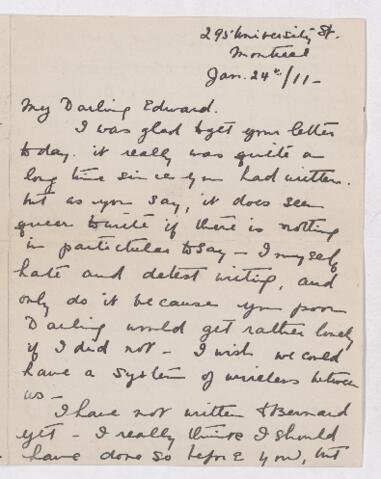 295 University St.
Montreal
Jan. 24th/11 -
My Darling Edward.
I was glad to get your letter
today. it really was quite a
long time since you had written.
but as you say, it does seem
queer to write if there is nothing
in particular to say - I myself
hate and detest writing, and
only do it because you poor
Darling would get rather lonely
if I did not - I wish we could
have a system of wireless between
us -
I have not written to Bernard
yet - I really think I should
have done so before you, but